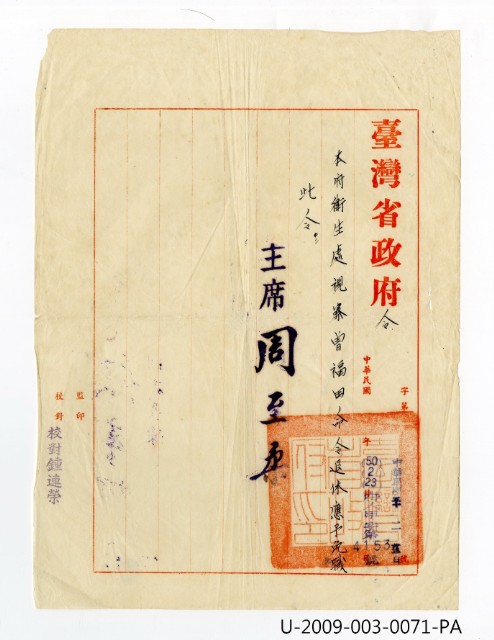 臺灣省政府令
中華民國 年
字第 號
50 2 23
4153
本府衛生處視察曾福田命令退休應予免職
此令。
主席周至柔
監印
校對
校對鍾連榮
U-2009-003-0071-PA